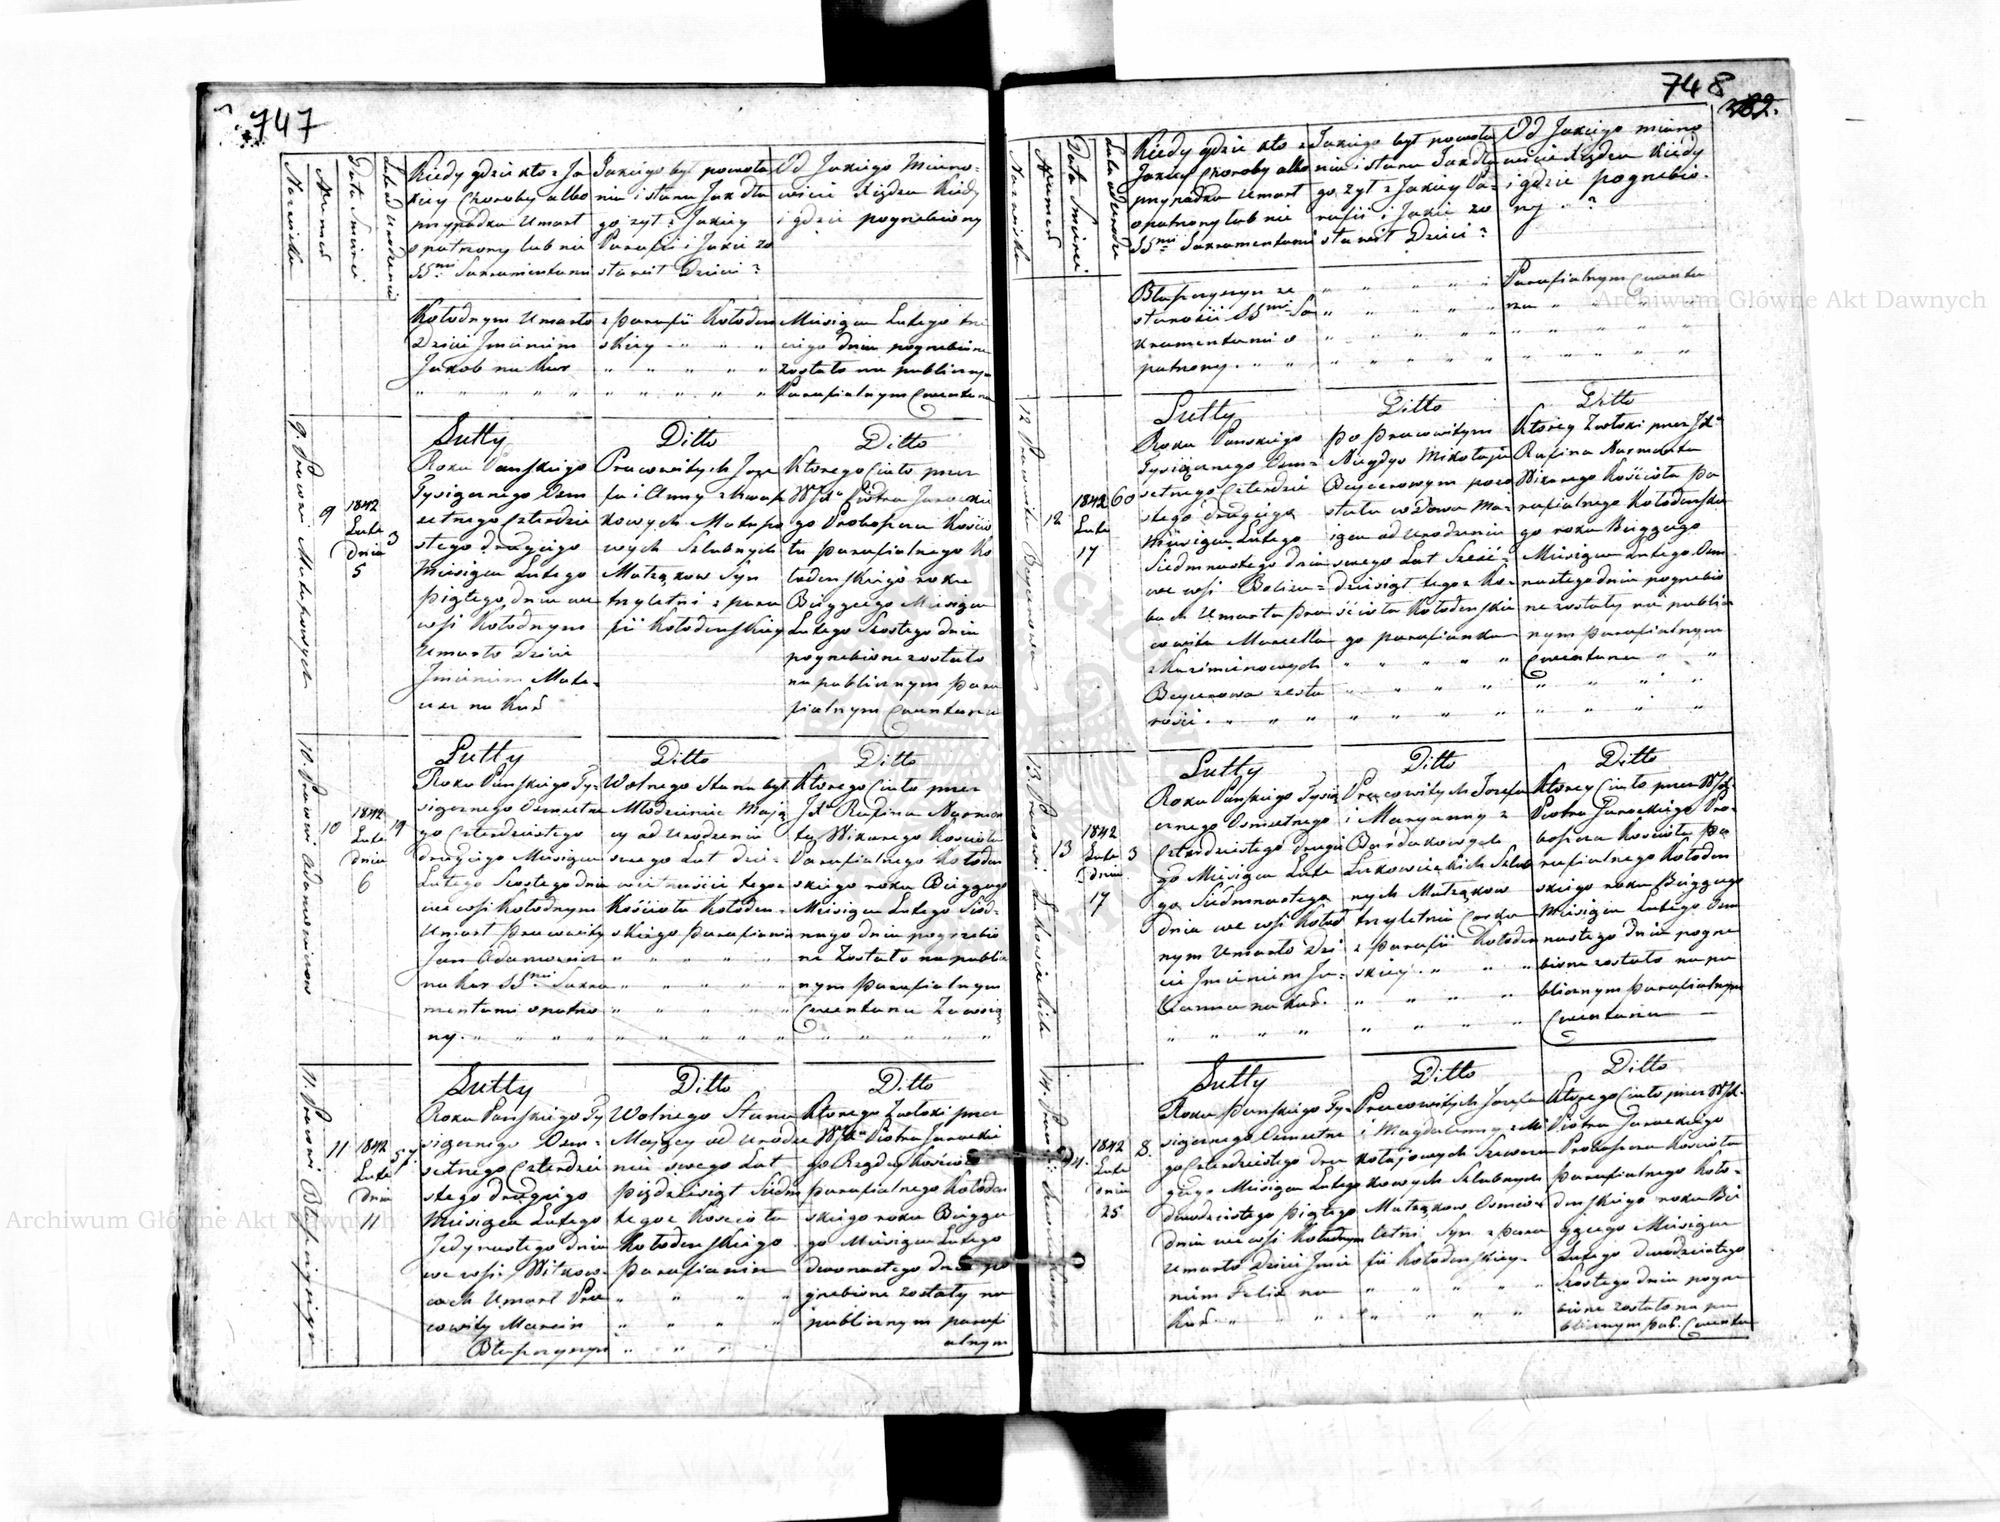 747
Nazwiska
Numer
Data Śmierci
Lata od Urodzenia
Kiedy gdzie kto z Ja
kiey Choroby albo
przypadku Umarł
opatrzony lub nie
SSmi Sakramentami
Jakiego był powoła
nia i stanu Jak dłu
go żył z Jakiey
Parafii i Jakie zo
stawił Dzieci?
Od Jakiego Miano-
wicie Xiędza Kiedy
i gdzie pogrzebiony
Kołodnym Umarło
Dziecie Jmieniem
Jakob na Kur
z parafii Kołoden
skiey
Miesiąca Lutego trze
ciego dnia pogrzebione
zostało na publiczny-
Parafialnym Cmentarzu
9
1842
Luta
Dnia
5
3
Lutty
Roku Pańskiego
Tysiącznego Osm
setnego Czterdzie
stego drugiego
Miesiąca Lutego
piątego dnia we
wsi Kołodnym
Umarło Dziecie
Jmieniem Mate-
usz na Kur
Ditto
Pracowitych Joze
fa i Anny z
kowych Matupo
wych Szlubnych
Małżąkow Syn
trzyletni z para
fii Kołodenskiey
Ditto
Ktorego Ciało przez
WJX Piotra Jarockie
go Proboszcza Kościo
ła parafialnego Ko
łodenskiego roku
Bieżącego Miesiąca
Lutego Szostego dnia
pogrzebione zostało
na publicznym para
fialnym Cmentarzu
10
1842
Luta
Dnia
6
19
Lutty
Roku Pańskiego Ty-
siącznego Osmsetne
go Czterdziestego
drugiego Miesiąca
Lutego Szostego dnia
we wsi Kołodnym
Umarł pracowity
Jan Adamowicz
na Kur SSmi Sakra
mentami opatrzo
ny.
Ditto
Wolnego Stanu był
Młodzieniec Mają
cy od Urodzenia
swego Lat dzie-
więtnaście tegoż
Kościoła Kołoden-
skiego parafianin
Ditto
Ktorego Ciało przez
JX Rufina Narmon
ta Wikarego Kościoła
Parafialnego Kołoden
skiego roku Bieżącego
Miesiąca Lutego Siod-
mego dnia pogrzebio
ne Zostało na publi
cznym parafialnym
Cmentarzu
11
1842
Luta
Dnia
11
57
Lutty
Roku Pańskiego Ty
siącznego Osm-
setnego Czterdzie
stego drugiego
Miesiąca Lutego
Jedynastego dnia
we wsi Witkow-
cach Umarł Pra
cowity Marcin
Błaszczyszyn
Ditto
Wolnego Stanu
Mający od Urodze
nia swego Lat
pięдziesiąt Siedm
tegoż Kościoła
Kołodenskiego
parafianin
Ditto
Ktorego Zwłoki przez
WJX Piotra Jarockie
go Rządcy Kościoła
parafialnego Kołoden
skiego roku Bieżące
go Miesiąca Lutego
dwonastego dnia po
grzebione zostały na
publicznym parafi
alnym
748
Nazwiska
Numer
Data Śmierci
Lata od Urodze
Kiedy gdzie kto z
Jakiey Choroby albo
przypadku Umarł
opatrzony lub nie
SSmi Sakramentami
Jakiego był powoła
nia i stanu Jak dłu
go żył z Jakiey Pa-
rafii i Jakie zo
stawił Dzieci?
Od Jakiego miano
wicie Xiędza Kiedy
i gdzie pogrzebio-
ny?
Błaszczyszyn ze
starości SSmi Sa
kramentami o
patrzony.
Parafialnym Cmenta
rzu
12
1842
Luta
17
60
Lutty
Roku Pańskiego
Tysiącznego Osm=
setnego Czterdzie
stego drugiego
Miesiąca Lutego
Siedmnastego dnia
we wsi Bolia=
bach Umarła pra
cowita Marcella
z Kazimierowych
Beycerowa ze sta
rości.
Ditto
po pracowitym
Niegdys Mikołaju
Beycerowym pozo
stała wdowa Ma-
jąca od Urodzenia
swego Lat Sześć-
dziesiąt tegoż Ko-
ścioła Kołodenskie
go parafianka
Ditto
Ktorey Zwłoki przez JX
Rufina Narmonta
Wikarego Kościoła Pa
rafialnego Kołodenskie
go roku Bieżącego
Miesiąca Lutego Osm
nastego dnia pogrzebio
ne zostały na publi
cznym parafialnym
Cmentarzu
13
1842
Luta
dnia
17
3
Lutty
Roku Pańskiego Tysią
cznego Osmsetnego
Czterdziestego drugie
go Miesiąca Lute
go Siedmnastego
dnia we wsi Kołod
nym Umarło Dzie
cie Jmieniem Jo-
anna na Kur.
Ditto
Pracowitych Jozefa
i Maryanny z
Bardakowych
Łukowieckich Szlub
nych Małżąkow
trzyletnia Corka
z parafii Kołoden
skiey.
Ditto
Ktorey Ciało przez WJX
Piotra Jarockiego Pro-
boszcza Kościoła pa
rafialnego Kołoden
skiego roku Bieżącego
Miesiąca Lutego Osm
nastego dnia pogrze
bione zostało na pu
blicznym parafialnym
Cmentarzu
14.
1842
Luta
dnia
25
8.
Lutty
Roku pańskiego Ty-
siącznego Osmsetne
go Czterdziestego dru
giego Miesiąca Lutego
dwudziestego piątego
dnia we wsi Kołodnym
Umarło Dziecie Jmie
niem Felix na
Kur.
Ditto
Pracowitych Jozefa
i Magdalenny z Mi
kołajowych Szewcza
kowych Szlubnych
Małżąkow Osmio-
letni Syn z para
fii Kołodenskiey.
Ditto
Ktorego Ciało przez WJX.
Piotra Jarockiego
Proboszcza Kościoła
parafialnego Koło-
denskiego roku Bie
żącego Miesiąca
Lutego dwudziestego
Szostego dnia pogrze
bione zostało na pu
blicznym par. Cmenta
Archiwum Główne Akt Dawnych
Archiwum Główne Akt Dawnych